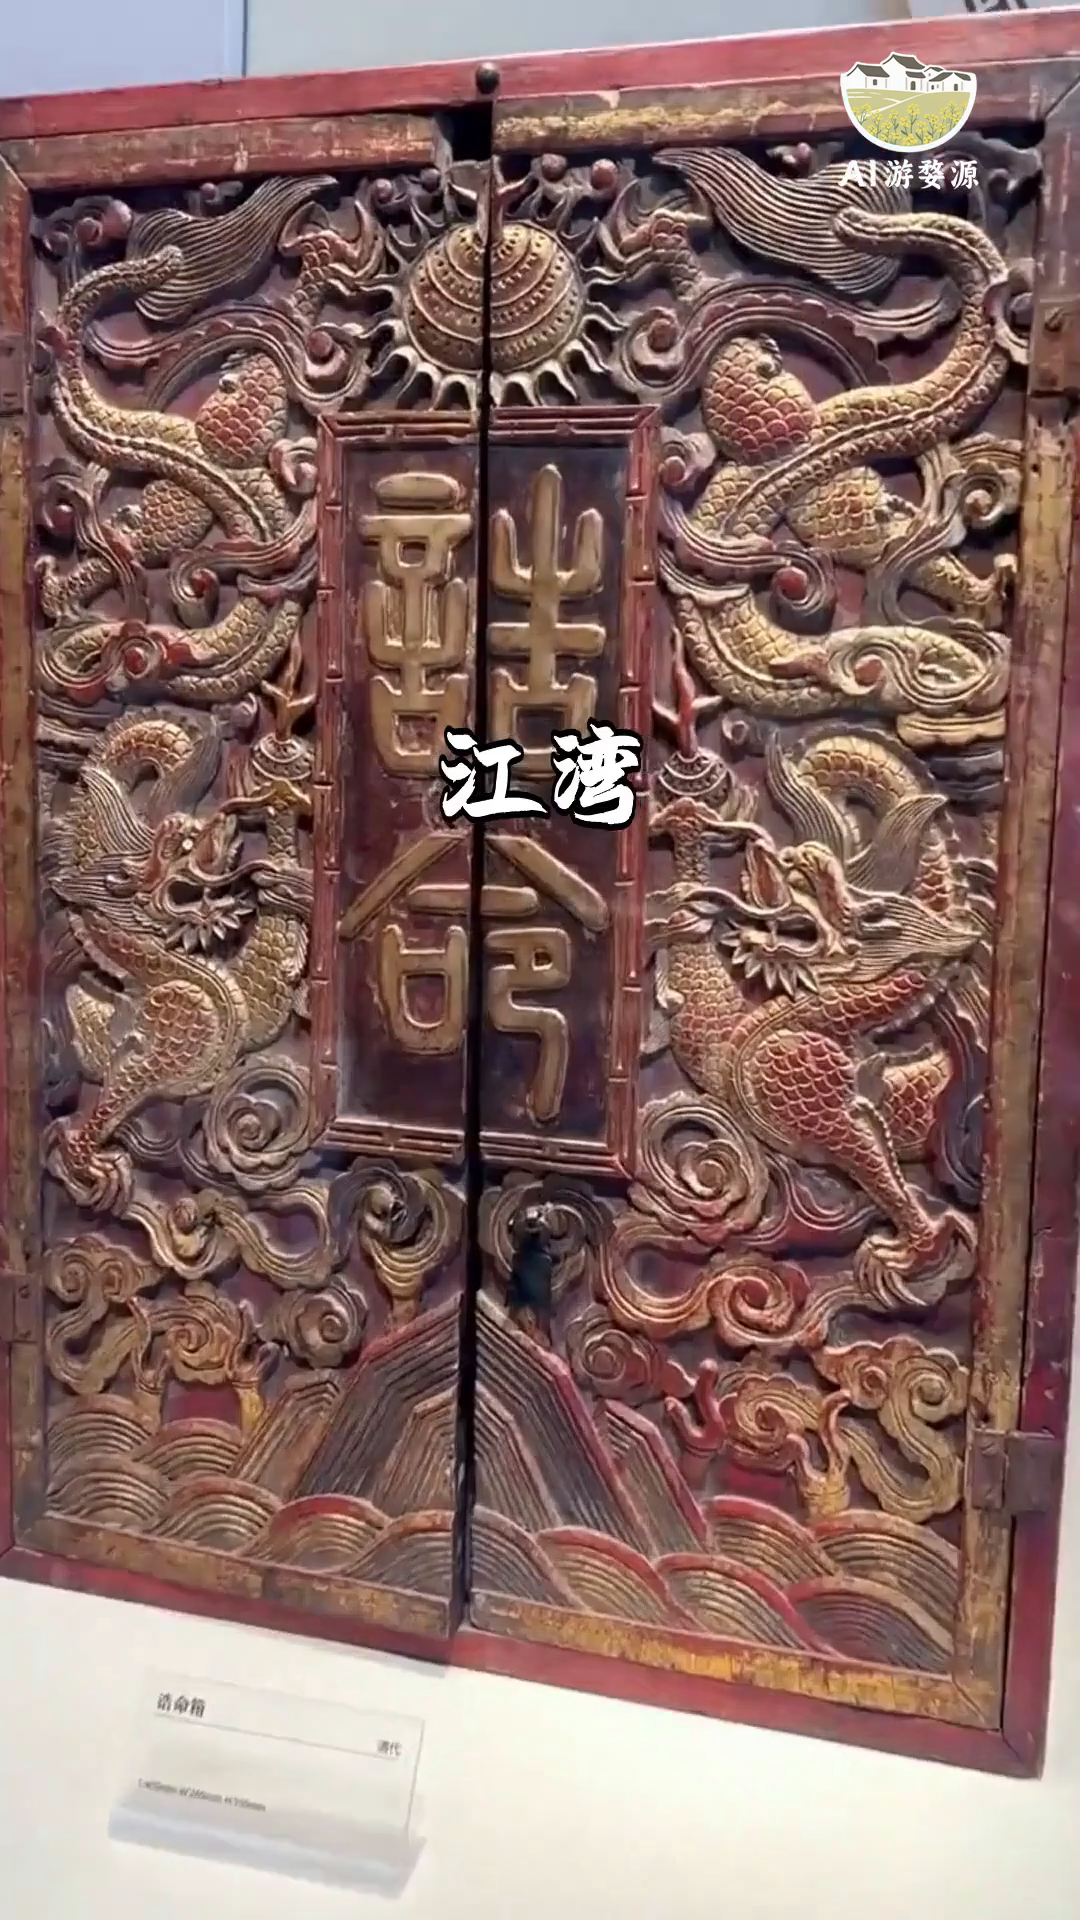 AI游婺源
誥命
江湾
诰命箱
清代